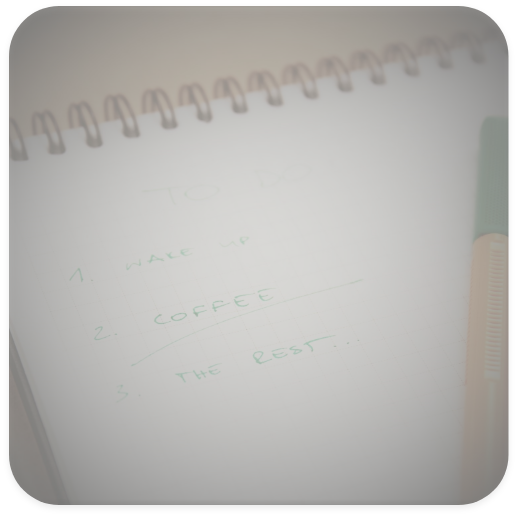 1. WAKE UP
2. COFFEE
3. THE REST...